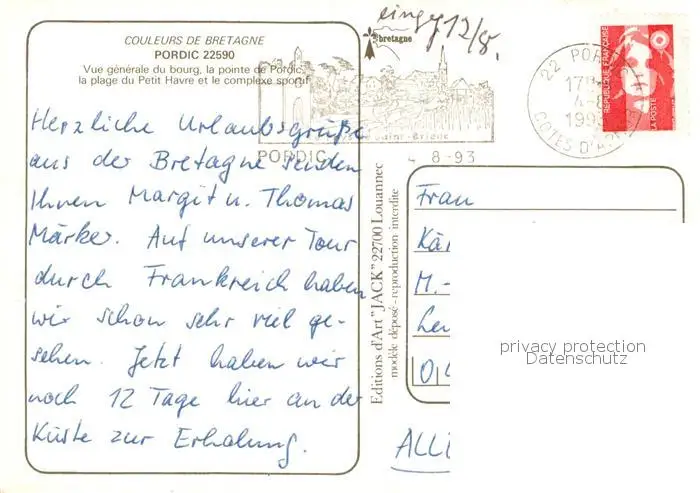 COULEURS DE BRETAGNE
PORDIC 22590
Vue générale du bourg, la pointe de Pordic,
la plage du Petit Havre et le complexe sportif
Herzliche Urlaubsgrüße
aus der Bretagne senden
Ihnen Margit u. Thomas
Märker. Auf unserer Tour
durch Frankreich haben
wir schon sehr viel ge-
sehen. Jetzt haben wir
noch 12 Tage hier an der
Küste zur Erholung.
Editions d'Art "JACK" 22700 Louannec
modèle déposé - reproduction interdite
eing. 12/8.
bretagne
PORDIC
4-8-93
22 PORDIC
17H
4-8
1993
COTES D'AR
RÉPUBLIQUE FRANÇAISE
LA POSTE
Frau
Kär
M.-
0,4
ALL
privacy protection
Datenschutz